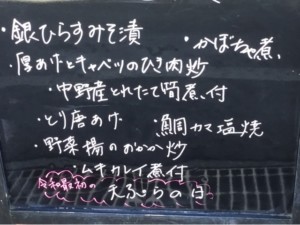 ・銀ひらすみそ漬
・かぼちゃ煮
・厚あげとキャベツのひき肉炒
・中野産とれたて筍煮付
・とり唐あげ
・鯛カマ塩焼
・野菜揚のおかか炒
・ムキカレイ煮付
令和最初の
天ぷらの日